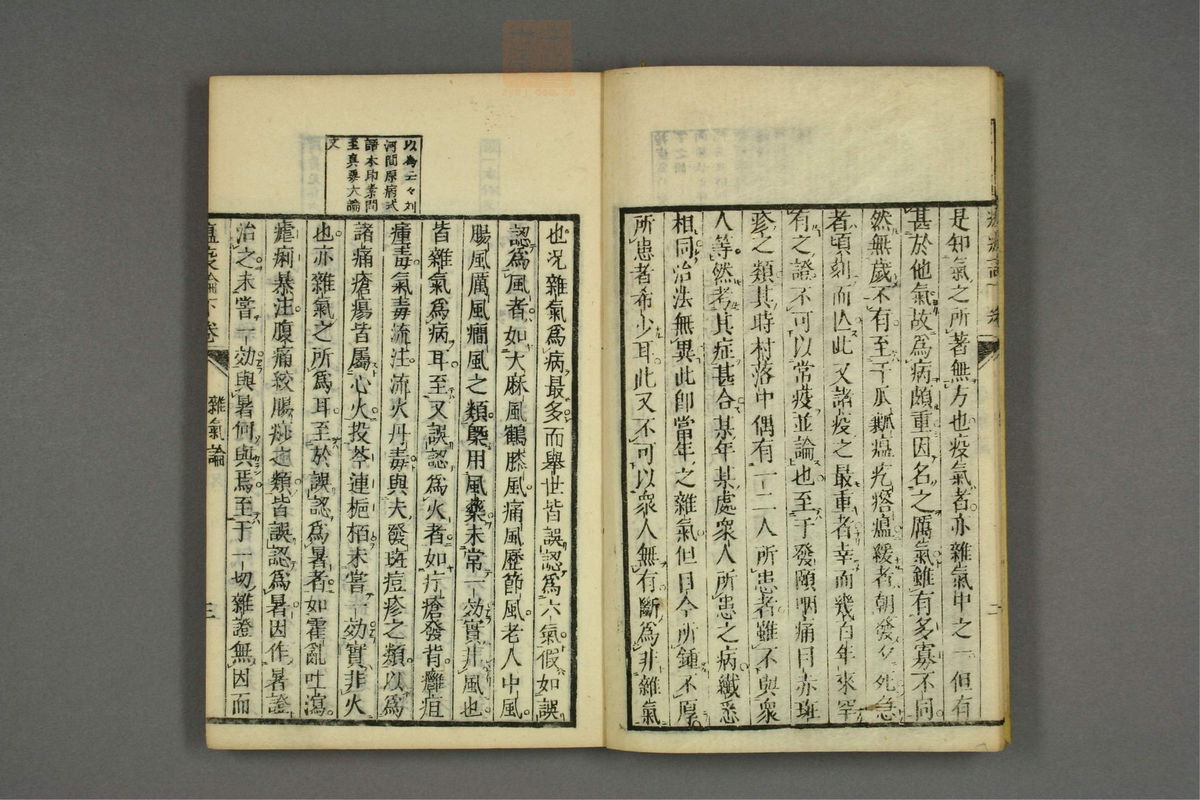 是知氣之所著無方也疫氣者亦雜氣中之一但有
甚於他氣故為病頗重因名之厲氣雖有多寡不同
然無歲不有至于瓜瓤瘟疙瘩瘟緩者朝發夕死急
者頃刻而亾此又諸疫之最重者幸而幾百年來罕
有之證不可以常疫並論也至于發頤咽痛目赤斑
疹之類其時村落中偶有一二人所患者雖不與衆
人等然考其症甚合某年某處衆人所患之病纖悉
相同治法無異此卽當年之雜氣但目今所鍾不厚
所患者希少耳此又不可以衆人無有斷為非雜氣
以為云々刘
河間原病式
語本邱素問
至真要大論
文
也况雜氣爲病最多而舉世皆誤認爲六氣假如誤
認爲風者如大麻風鶴膝風痛風歷節風老人中風
腸風厲風癇風之類槩用風藥未常一效實非風也
皆雜氣爲病耳至又誤認爲火者如疔瘡發背癰疽
瘇毒氣毒流注流火丹毒與夫發斑痘疹之類以爲
諸痛瘡瘍皆屬心火投芩連梔栢未嘗一效實非火
也亦雜氣之所爲耳至於誤認爲暑者如霍亂吐瀉
瘧痢暴注腹痛絞腸痧之類皆誤認爲暑因作暑證
治之未嘗一效與暑何與焉至于一切雜證無因而
瘟疫論下卷
雜氣論
三